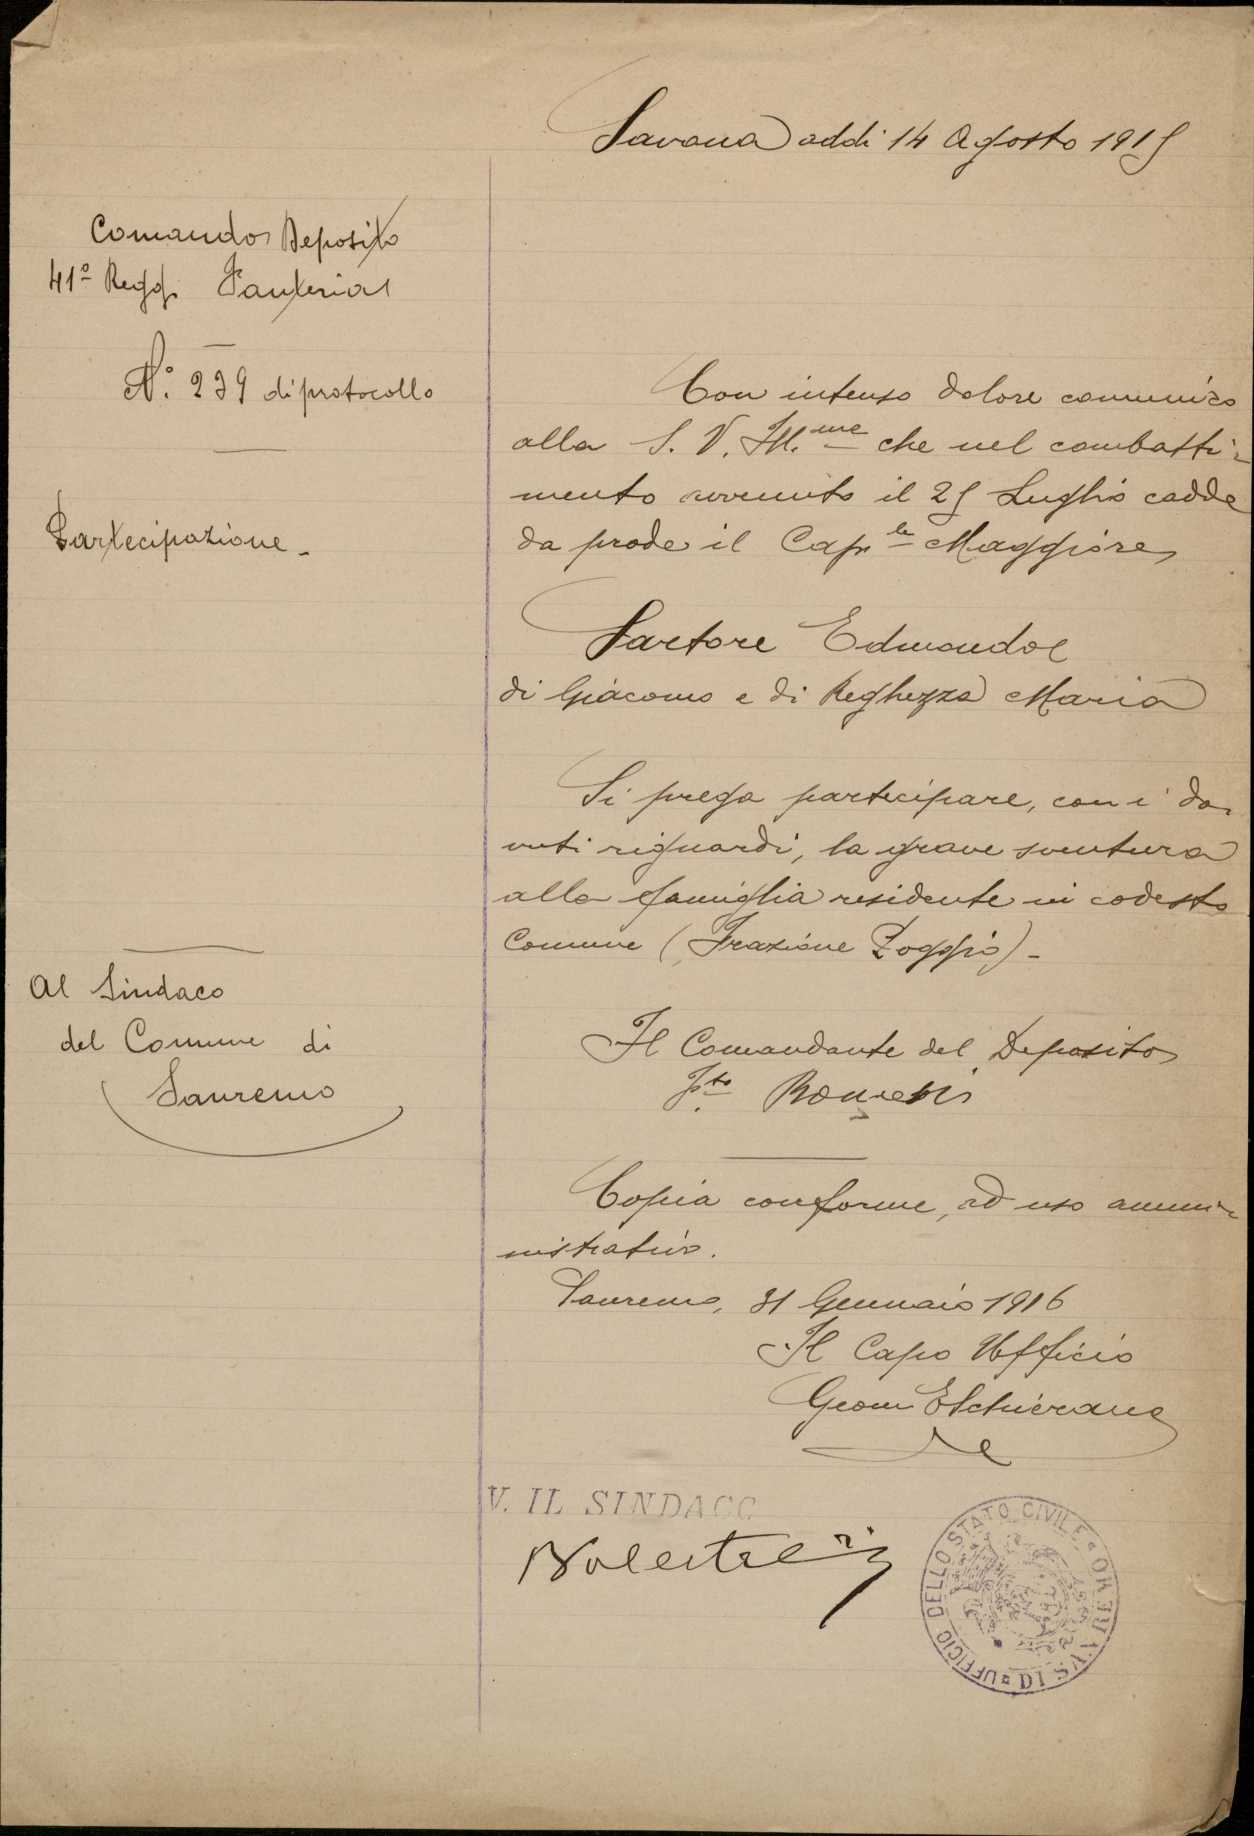 Savona addi 14 Agosto 1915
Comando Deposito
41º Regg. Fanteria
Nº. 239 di protocollo
Partecipazione -
Con intenso dolore comunico
alla S. V. Ill.me che nel combatti-
mento avvenuto il 25 Luglio cadde
da prode il Cap.le Maggiore
Sartore Edmondo
di Giacomo e di Reghezza Maria
Si prega partecipare, con i do-
vuti riguardi, la grave sventura
alla famiglia residente in codesto
Comune (Frazione Poggio) -
Al Sindaco
del Comune di
Sanremo
Il Comandante del Deposito
F.to
Copia conforme, ad uso ammi-
nistrativo.
Sanremo, 31 Gennaio 1916
Il Capo Ufficio
Geom
V. IL SINDACO
UFFICIO DELLO STATO CIVILE DI SAN REMO